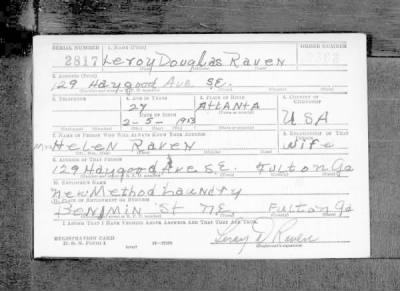 SERIAL NUMBER 1. NAME (Print) ORDER NUMBER
2817 Leroy Douglas Raven
2. ADDRESS (Print)
129 Haygood Ave S.E.
3. TELEPHONE 4. AGE IN YEARS 5. PLACE OF BIRTH 6. COUNTRY OF CITIZENSHIP
27 ATLANTA
DATE OF BIRTH
2-5-1913 USA
7. NAME OF PERSON WHO WILL ALWAYS KNOW YOUR ADDRESS 8. RELATIONSHIP OF THAT PERSON
Mrs Helen Raven Wife
9. ADDRESS OF THAT PERSON
129 Haygood Ave S.E. Fulton Ga
10. EMPLOYER'S NAME
New Method Laundry
11. PLACE OF EMPLOYMENT OR BUSINESS
BENJMIN St NE Fulton Ga
I AFFIRM THAT I HAVE VERIFIED ABOVE ANSWERS AND THAT THEY ARE TRUE.
REGISTRATION CARD
D. S. S. Form 1
Leroy D. Raven